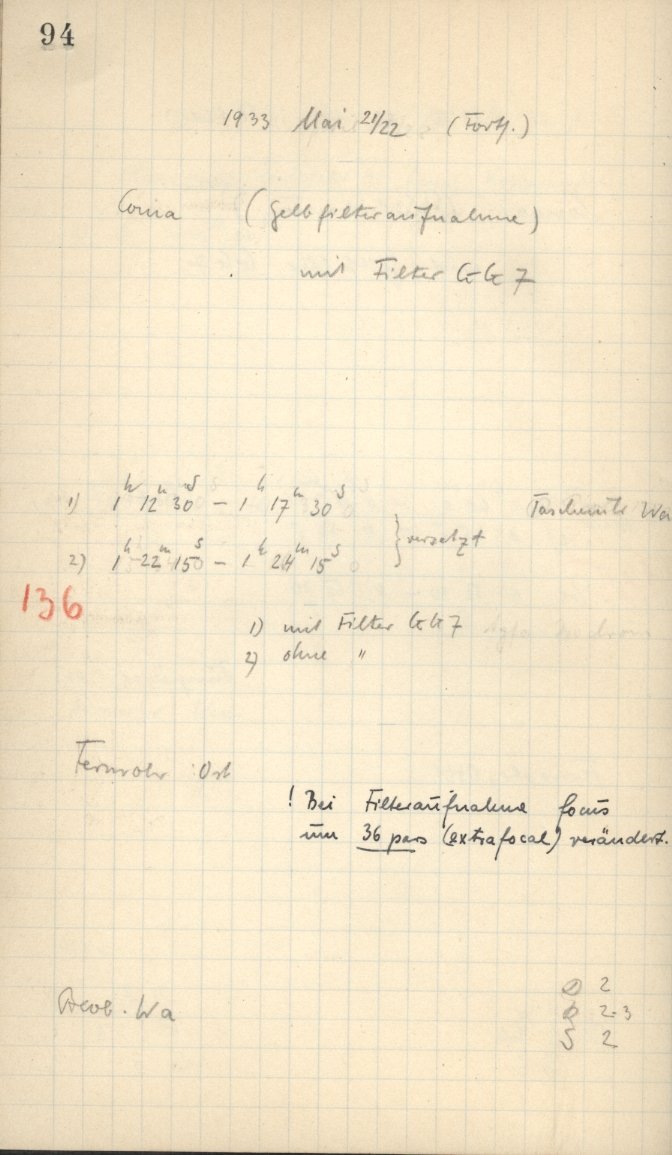 94
1933 Mai 21/22 (Fortf.)
Coma (Gelbfilteraufnahme)
mit Filter GG 7
1) 1h 12m 30s – 1h 17m 30s
Taschenuhr Wa
} versetzt
2) 1h 22m 15s – 1h 24m 15s
136
1) mit Filter GG 7
2) ohne "
Fernrohr Ost
! Bei Filteraufnahme focus
um 36 pars (extrafocal) verändert.
Beob. Wa
2
2-3
S 2